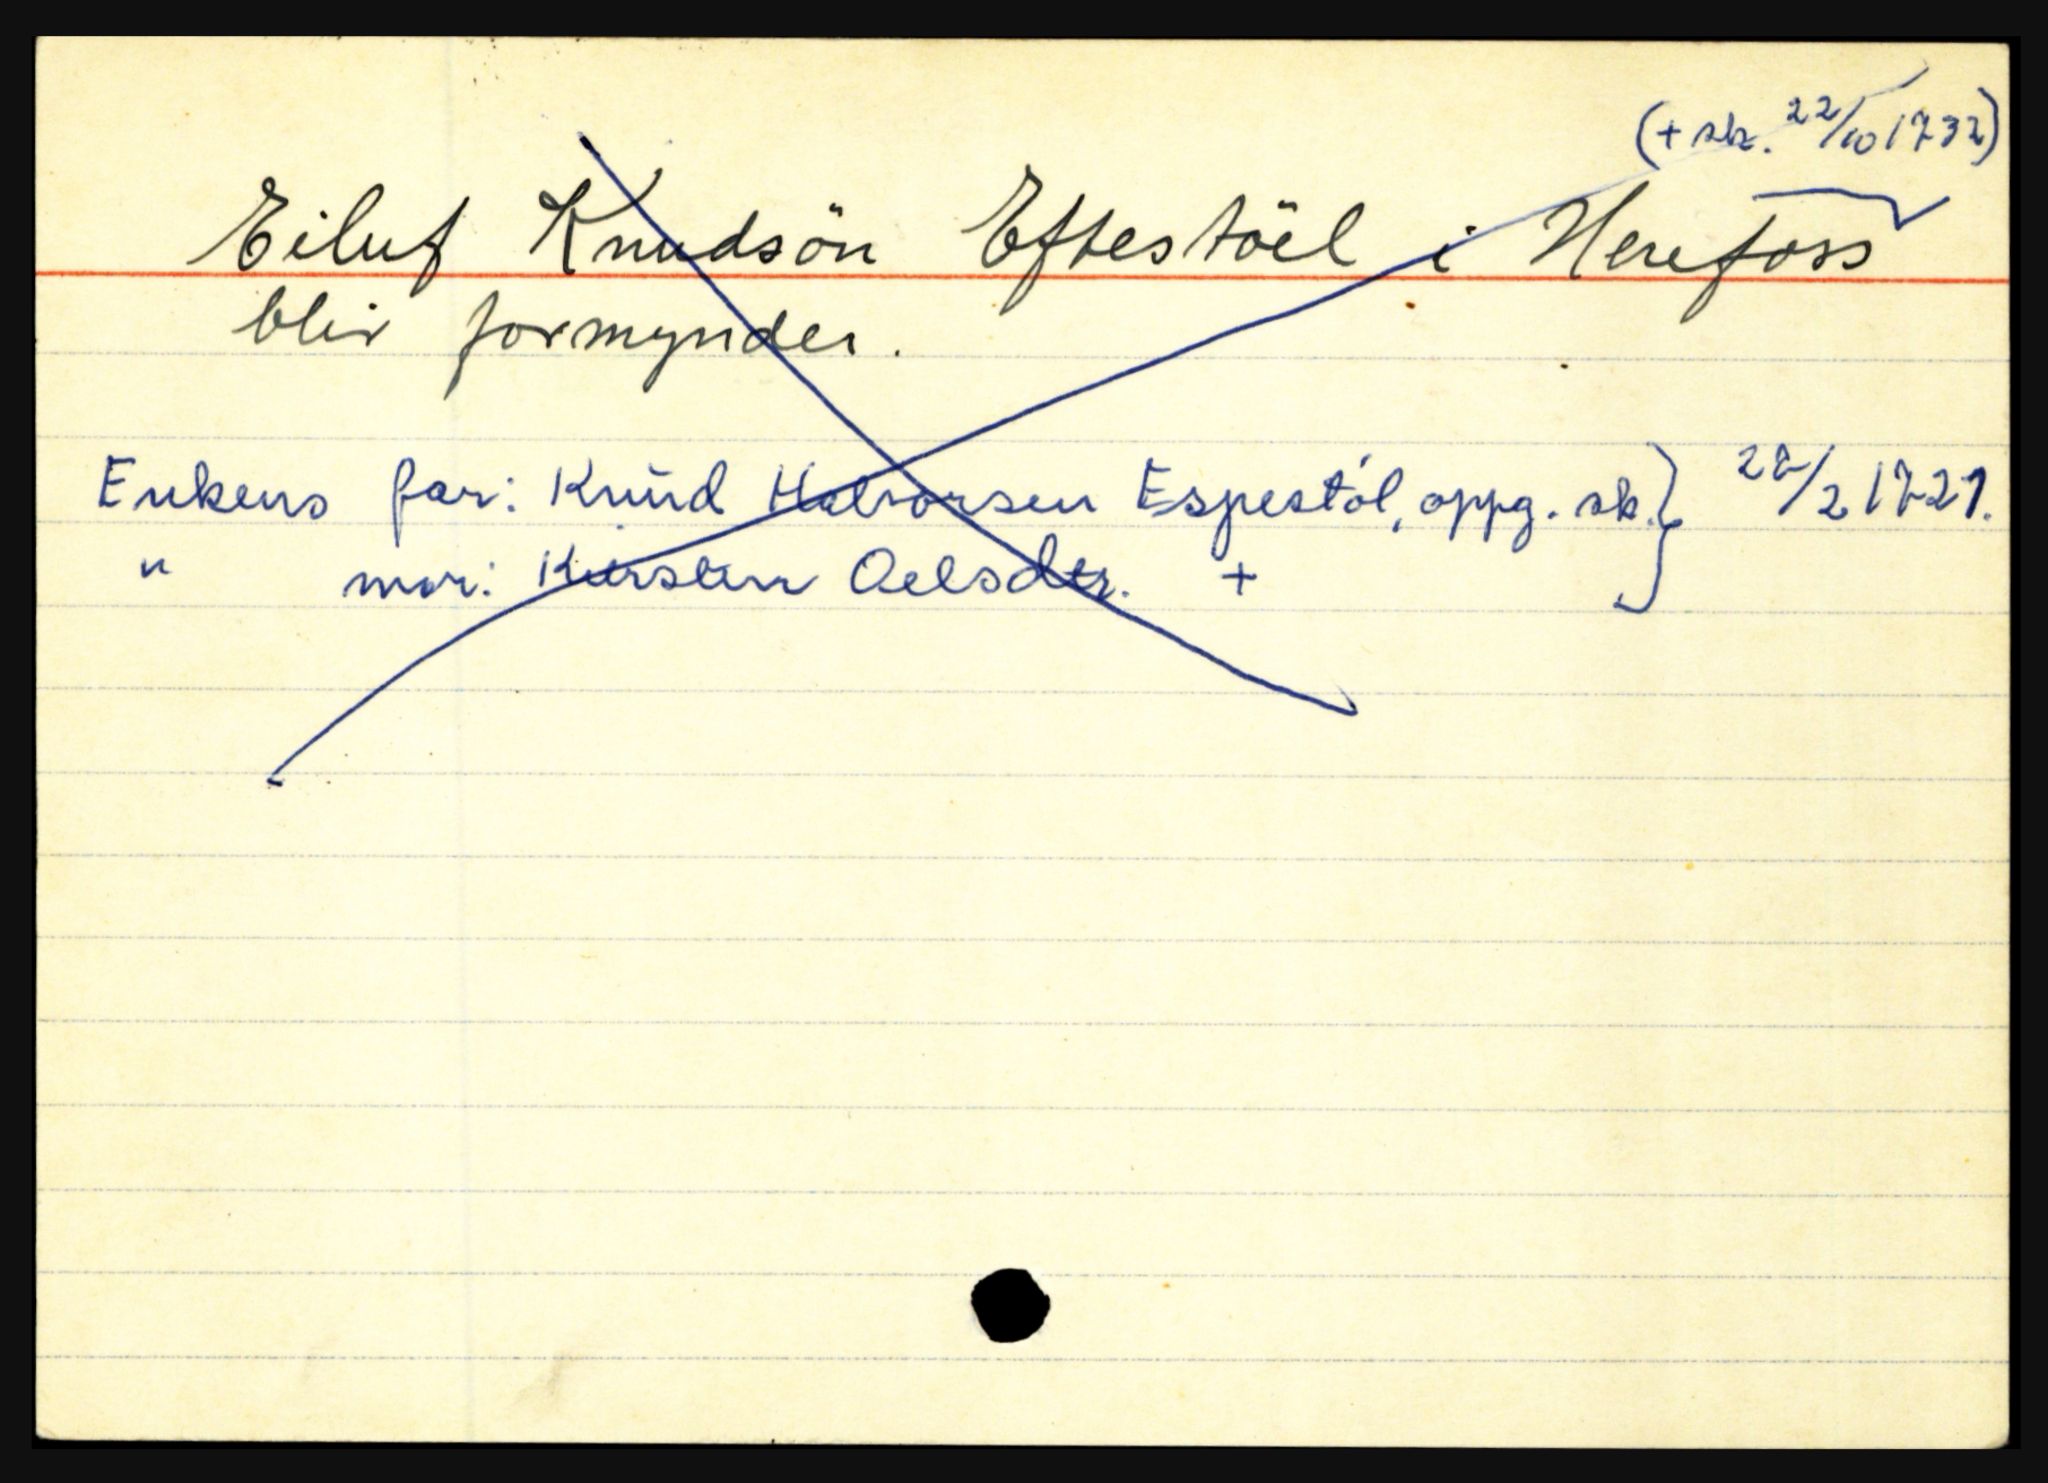 (+ sk. 22/10 1732)
Eiluf Knudsön Eftestöel i Herefoss
blir formynder.
Enkens far: Knud Halvorsen Espestöl, oppg. sk. } 22/2 1721.
" mor: Kirsten Oelsdtr. +